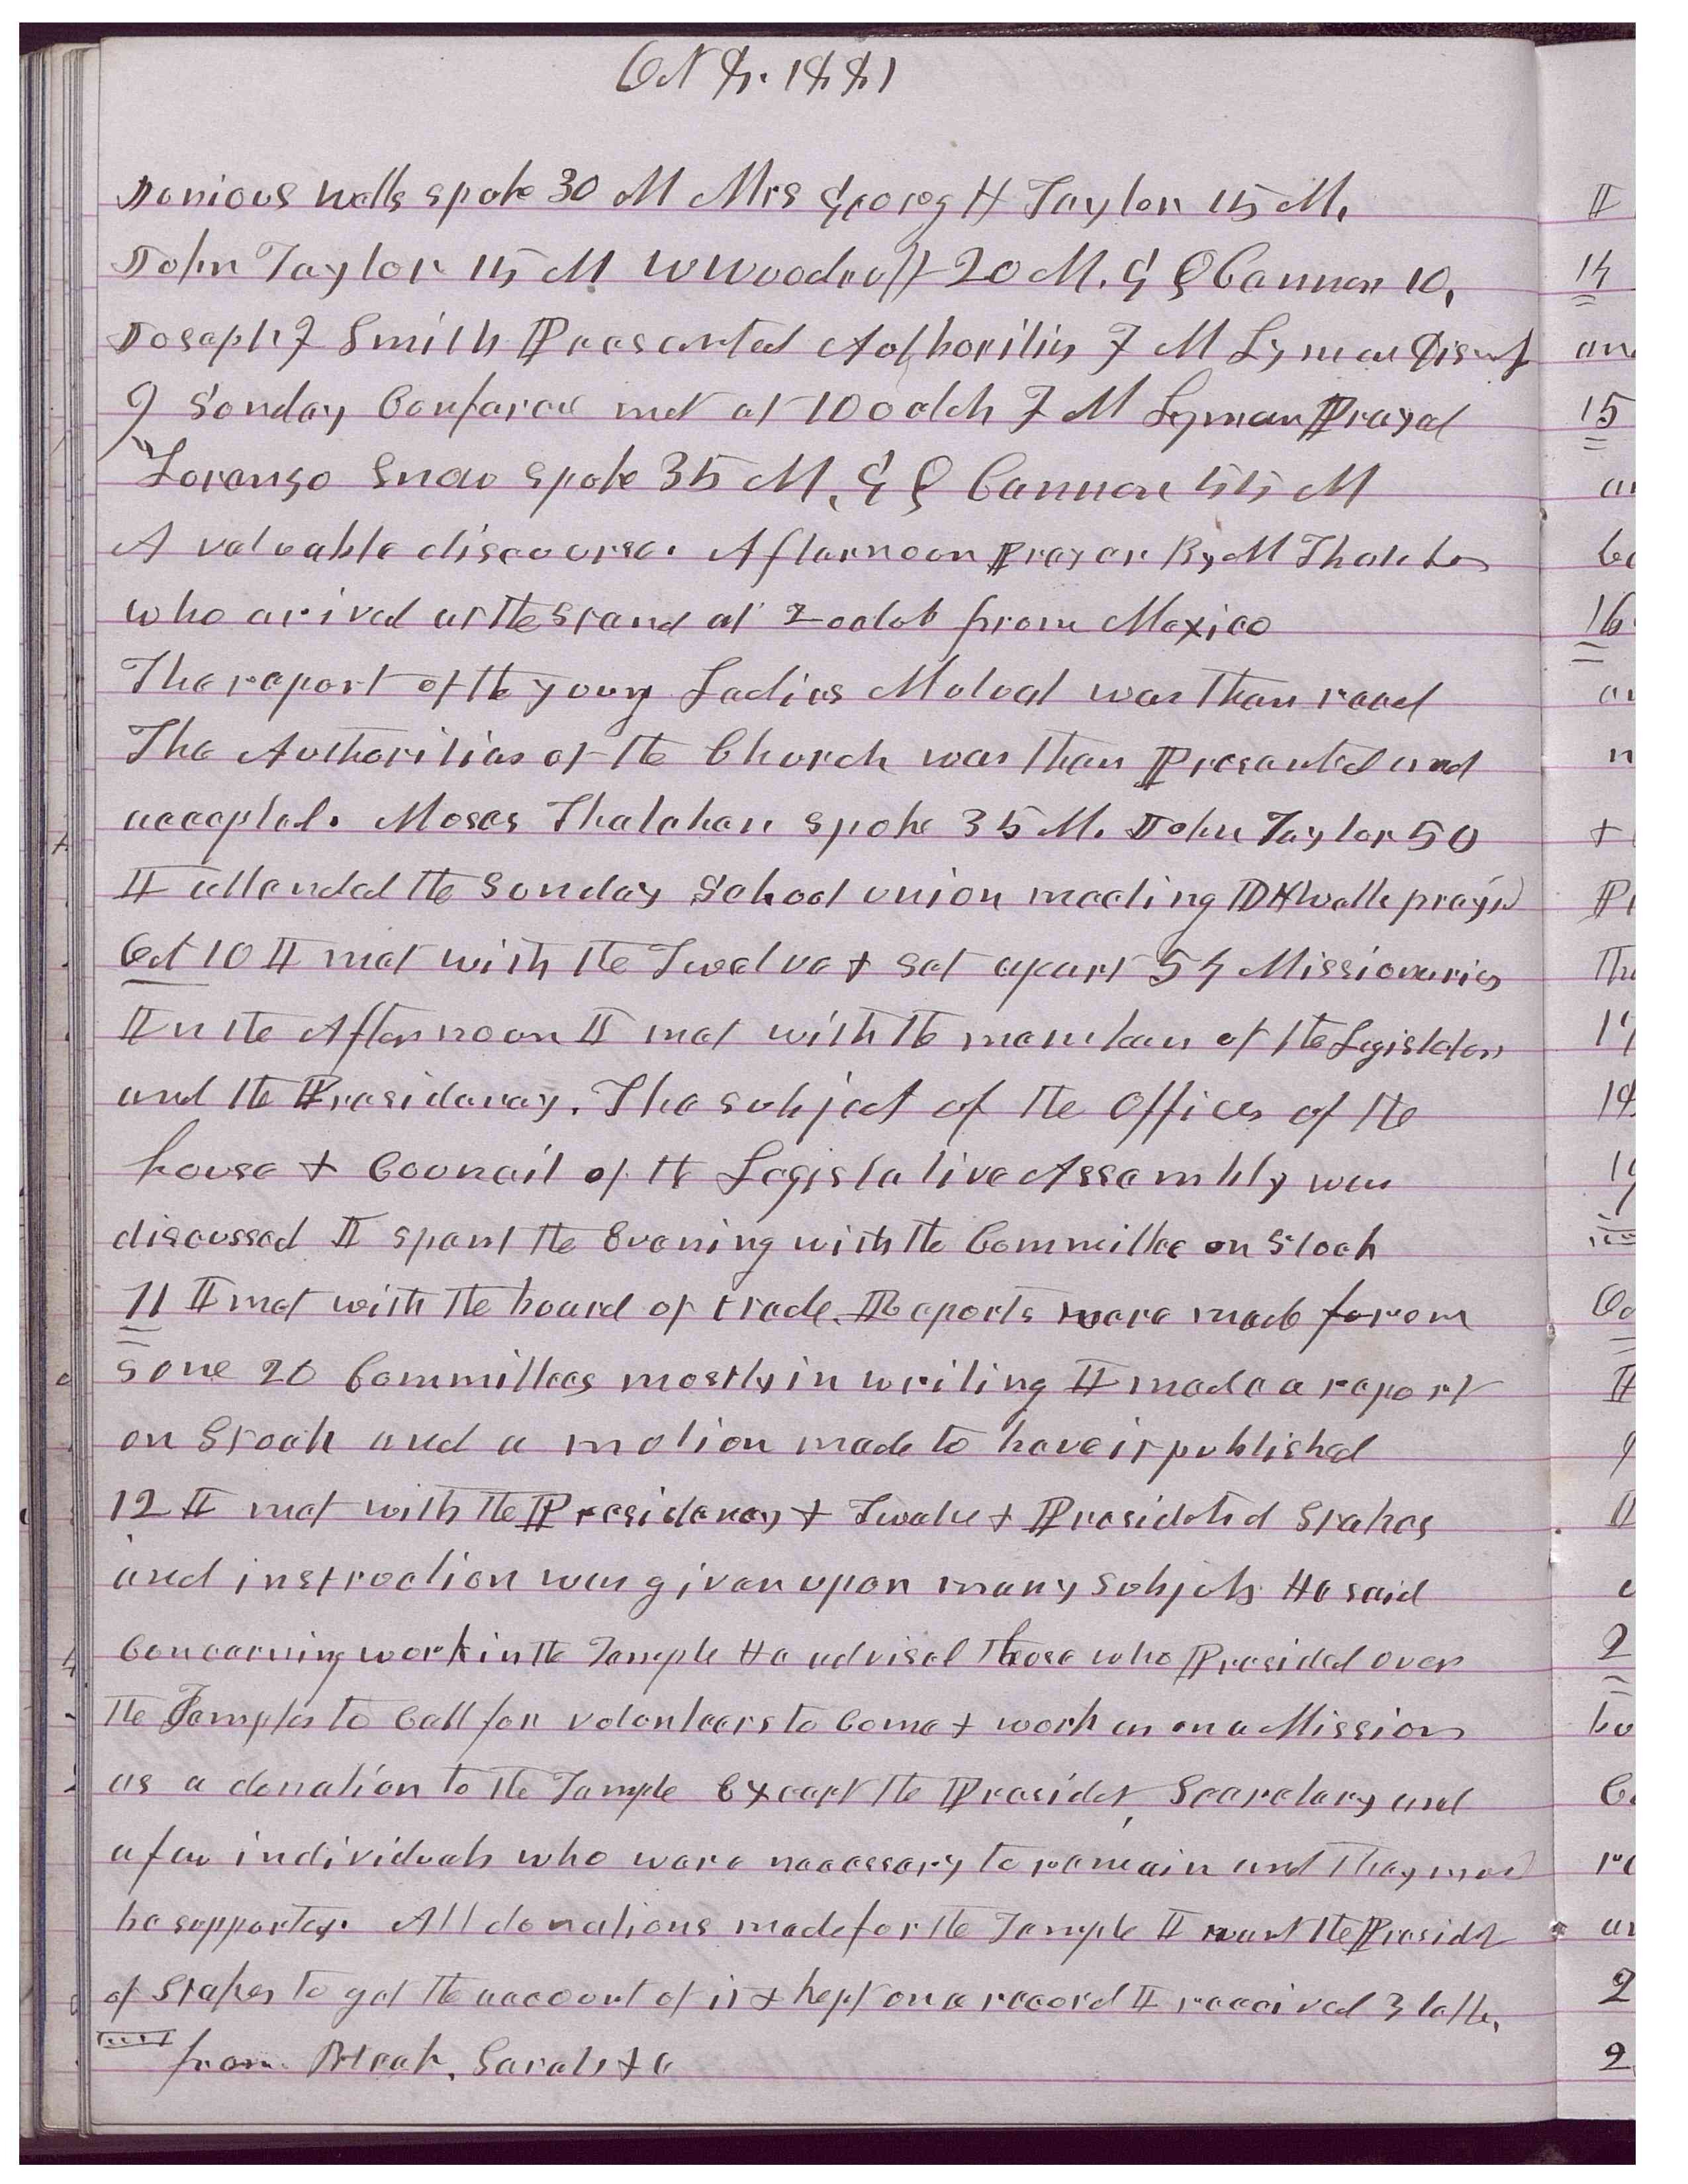 Oct 8. 1881
Junious Wells spoke 30 M Mrs Georg H Taylor 15 M.
John Taylor 15 M W Woodruff 20 M. G Q Cannon 10,
Joseph F Smith Presented Authorities F M Lyman Dismisd
9 Sunday Conference met at 10 oclok F M Lyman Prayed
Lorenzo Snow spoke 35 M, G Q Cannon 55 M
A valuable discourse. Afternoon Prayer By M Thatcher
who arived at the stand at 2 oclok from Mexico
The report of the young Ladies Mutual was then read
The Authorities of the Church was then Presented and
accepted. Moses Thatcher spoke 35 M. John Taylor 50
I attended the Sunday School union meeting D H Wells prayed
Oct 10 I met with the Twelve + set apart 54 Missionaries
In the Afternoon I met with the members of the Legislator
and the Presidency. The subject of the Offices of the
house + Council of the Legislative Assembly was
discussed I spent the Evening with the Committee on Stock
11 I met with the board of trade. Reports were made from
some 20 Committees mostly in writing I made a report
on Stock and a motion made to have it published
12 I met with the Presidency + Twelve + Presidets of Stakes
and instruction was given upon many subjects He said
Concerning work in the Temple He advised those who Presided over
the Temples to Call for volunteers to Come + work as on a Mission
as a donation to the Temple Except the Presidet, Secretary and
a few individuals who were necessary to remain and they must
be supported. All donations made for the Temple I want the Presidets
of Stakes to get the account of it + kept on a record I received 3 letters
from Bleak, Sarah + C